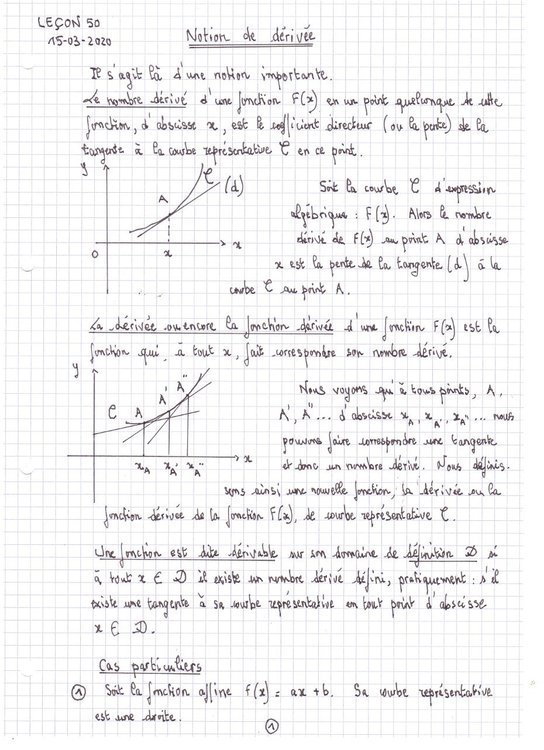 LEÇON 50
15-03-2020
Notion de dérivée
Il s'agit là d'une notion importante.
Le nombre dérivé d'une fonction F(x) en un point quelconque de cette
fonction, d'abscisse x, est le coefficient directeur (ou la pente) de la
tangente à la courbe représentative C en ce point.
y
C
(d)
A
O
x
x
Soit la courbe C d'expression
algébrique : F(x). Alors le nombre
dérivé de F(x) au point A d'abscisse
x est la pente de la tangente (d) à la
courbe C au point A.
La dérivée ou encore la fonction dérivée d'une fonction F(x) est la
fonction qui, à tout x, fait correspondre son nombre dérivé.
y
C
A
A'
A''
xA
xA'
xA''
x
Nous voyons qu'à tous points, A,
A', A''... d'abscisse xA, xA', xA''... nous
pouvons faire correspondre une tangente
et donc un nombre dérivé. Nous définis-
sons ainsi une nouvelle fonction, la dérivée ou la
fonction dérivée de la fonction F(x), de courbe représentative C.
Une fonction est dite dérivable sur son domaine de définition D si
à tout x ∈ D il existe un nombre dérivé défini, pratiquement : s'il
existe une tangente à sa courbe représentative en tout point d'abscisse
x ∈ D.
Cas particuliers
① Soit la fonction affine f(x) = ax + b. Sa courbe représentative
est une droite.
①